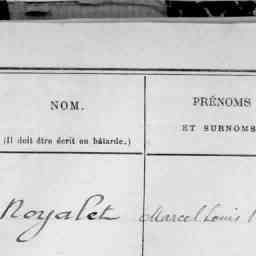 NOM.
(Il doit être écrit en bâtarde.)
PRÉNOMS
ET SURNOMS
Noyalet
Marcel Louis